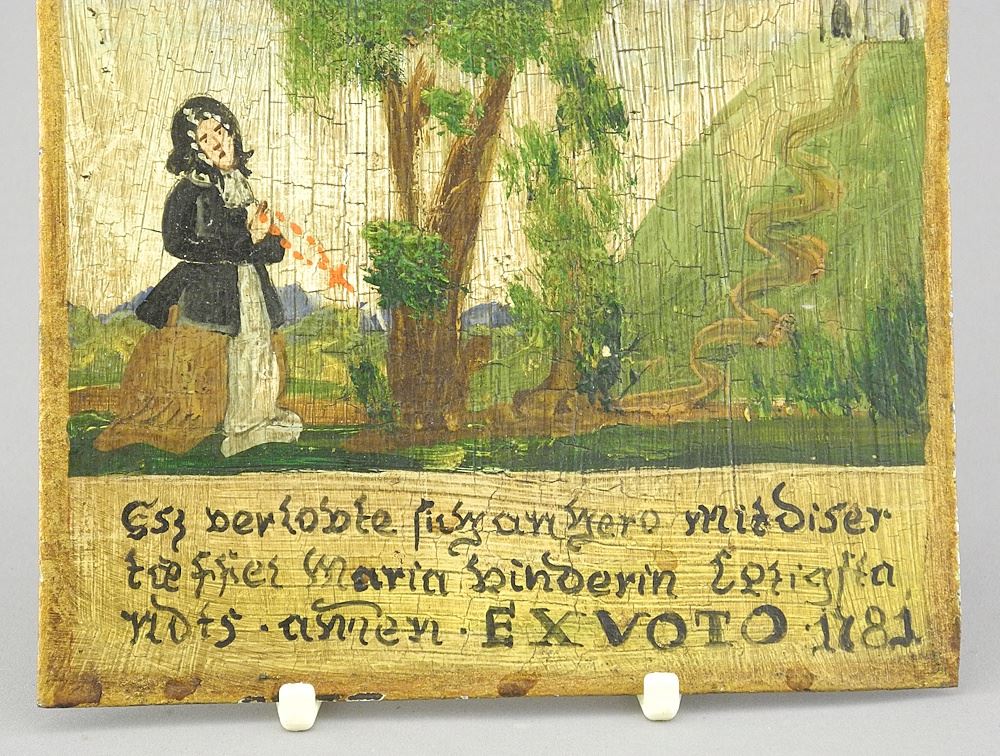 Esz verlobte sich an hero mit diser
taffel Maria binderin
amen. EX VOTO. 1781